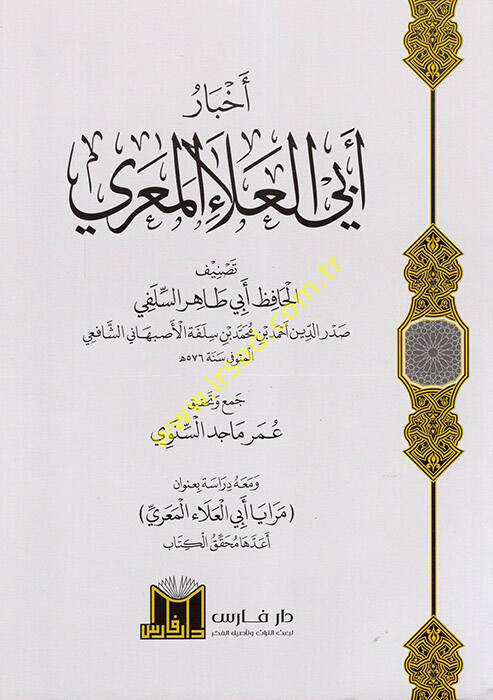 أَخْبَارُ
أَبِي العَلَاءِ المَعَرِي
تَصْنِيْف
الحَافِظِ أَبِي طَاهِرِ السِّلَفِي
صَدْرِ الدِّينِ أَحْمَدَ بْنِ مُحَمَّدِ بْنِ سِلَفَة الأَصْبهَانِي الشَّافِعِي
المُتوفى سَنَة ٥٧٦هـ
جَمع وَتحقيق
عُمَر مَاجِد السِّنَوِي
وَمَعَهُ دِرَاسَة بِعنوان
( مَرَايا أَبِي العَلَاء المَعَرِّي )
أَعَدَّهَا مُحَقِّقُ الكِتَاب
دار فارس
دار فارس
لبعث التراث وتأصيل الفكر
www.irsad.com.tr